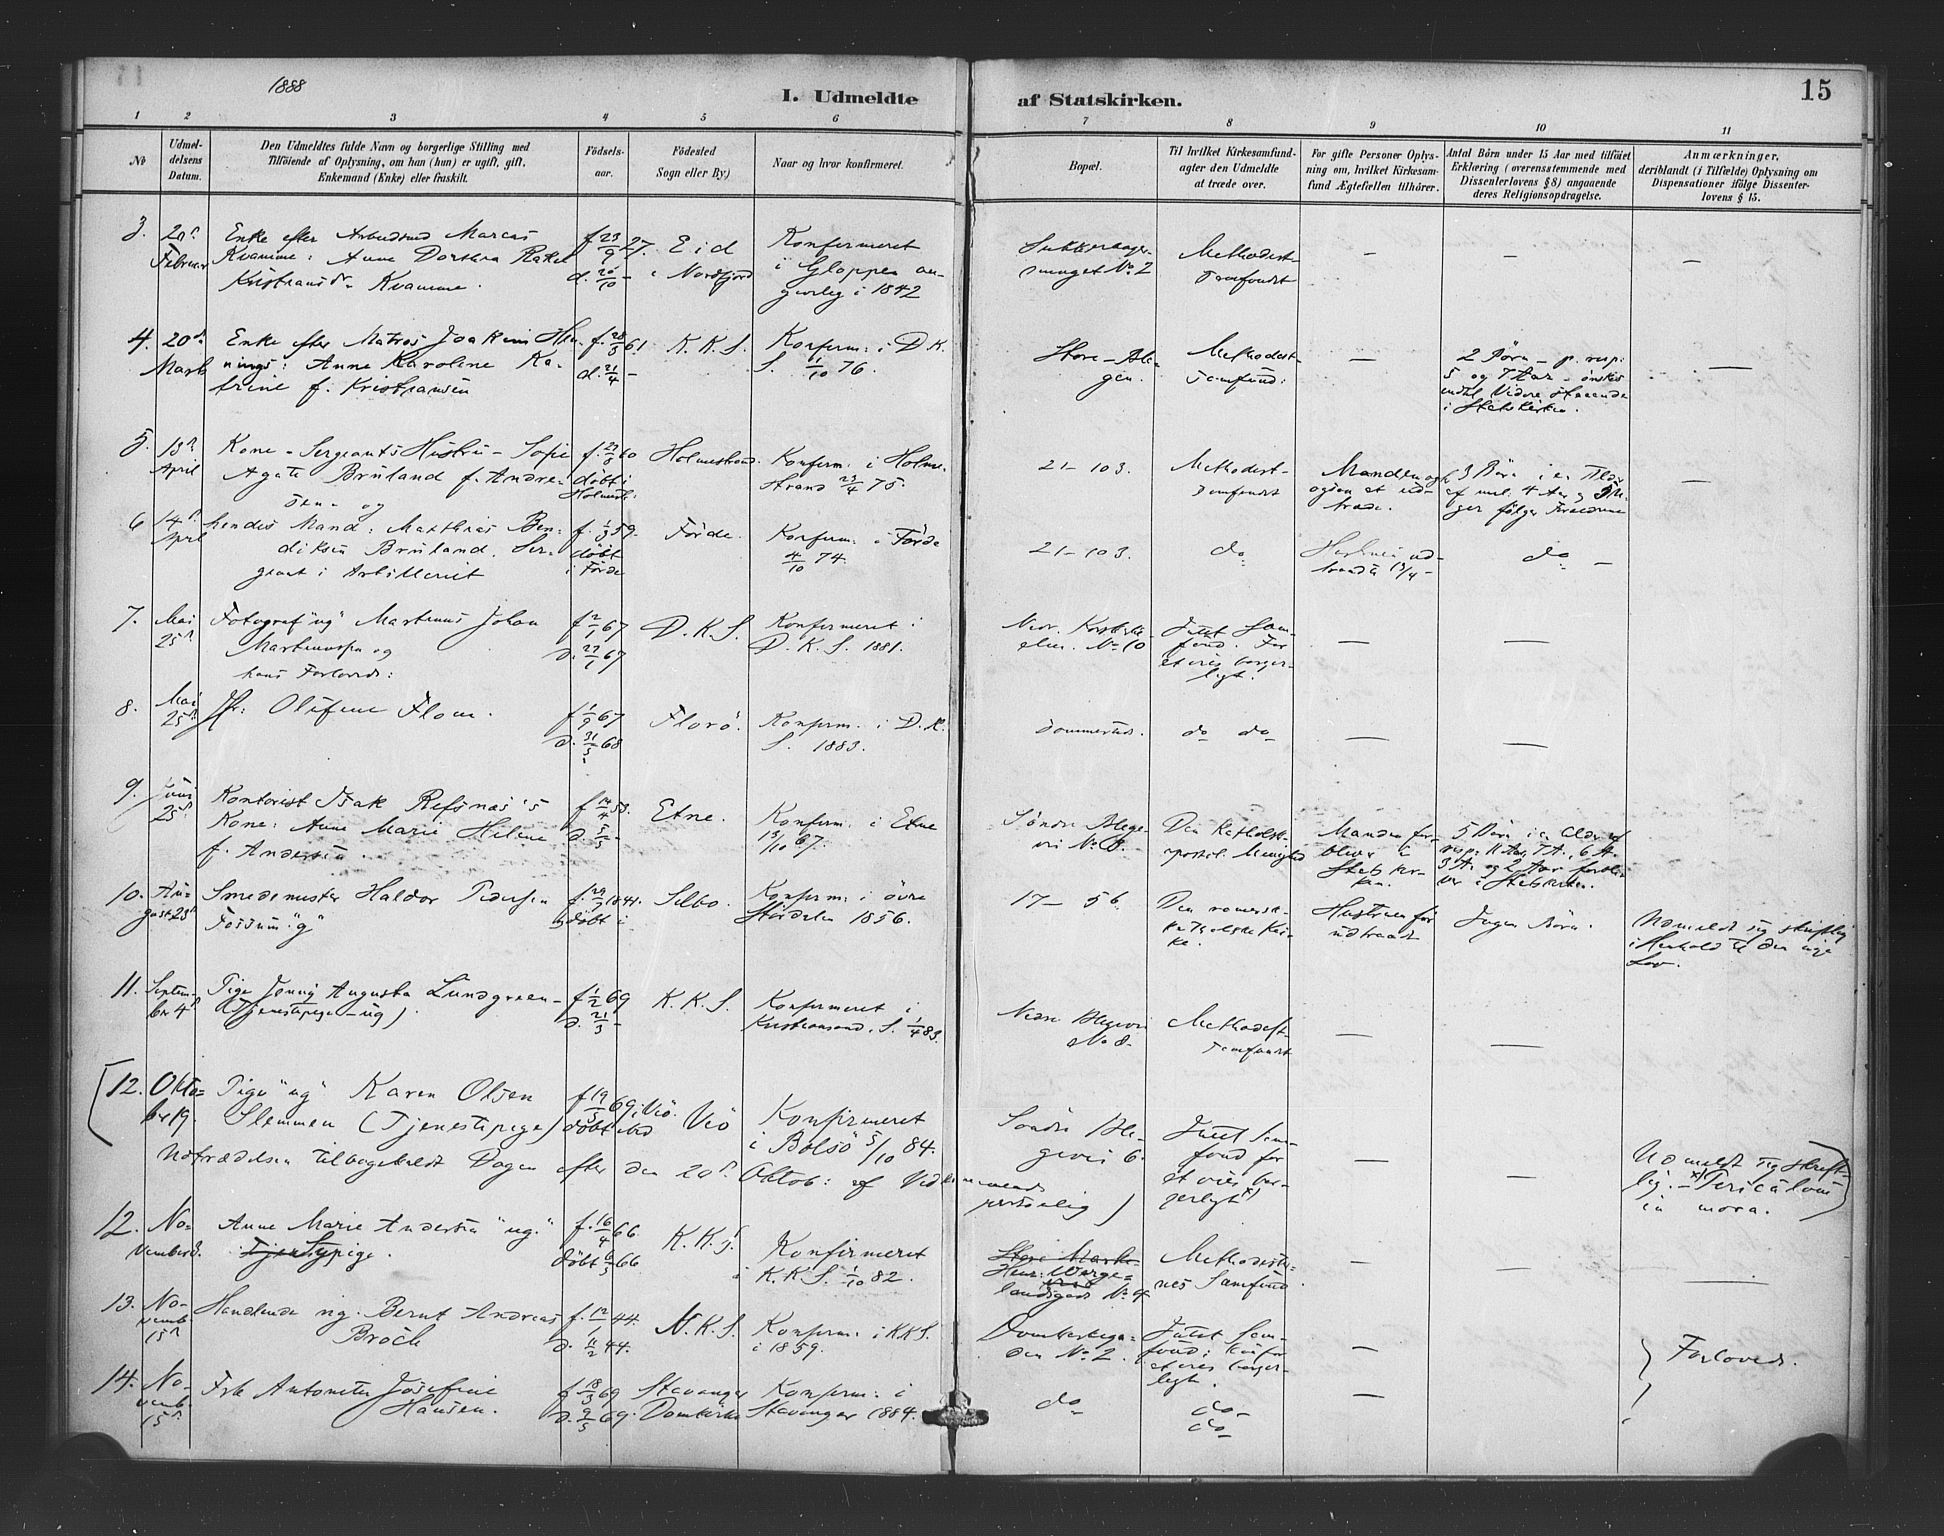 1888
I. Udmeldte af Statskirken.
15
1 2 3 4 5 6 7 8 9 10 11
No
Udmeldelsens Datum.
Den Udmeldtes fulde Navn og borgerlige Stilling med
Tilføiende af Oplysning, om han (hun) er ugift, gift,
Enkemand (Enke) eller fraskilt.
Födselsaar.
Födested
Sogn eller By)
Naar og hvor konfirmeret.
Bopæl.
Til hvilket Kirkesamfund-
agter den Udmeldte
at træde over.
For gifte Personer Oplys-
ning om, hvilket Kirkesam-
fund Ægtefællen tilhörer.
Antal Börn under 15 Aar med tilföiet
Erklæring (overensstemmende med
Dissenterlovens §8) angaaende
deres Religionsopdragelse.
Anmærkninger,
deriblandt (i Tilfælde) Oplysning om
Dispensationer ifölge Dissenter-
lovens § 15.
3. 20de Februar
Enke efter Arbeidsmd Marcus
Kvamme: Anne Dorthea Rakel
Kristiansdr Kvamme.
f 23/9 27.
d. 20/10 –
Eid
i Nordfjord
Konfirmeret
i Gloppen an-
givelig i 1842
Sukkerhuus-
smuget No. 2
Methodist-
Samfundet
—
—
—
4. 20de Marts
Enke efter Matros Joakim Hen-
nings: Anne Karolene Ka-
trine f. Kristiansen
f. 28/3 61
d. 21/4 –
K. K. S.
Konfirm: i D. K.
S. 1/10 76.
Store-Ble-
gen.
Methodist-
Samfund:
—
2 Börn – p. resp:
5 og 7 Aar – önskes
indtil Videre staaende
i Statskirken.
—
5. 13de April
Kone – Sergeants Hustru – Sofie
Agate Bruland f. Andre-
sen – og
f. 22/8 60
döbt i
Holmestr:
Holmestrand.
Konfirm: i Holme-
strand 23/4 75.
21 – 103.
Methodist-
Samfundet
Manden og
3 Börn i en Alder
—
6 14de April
hendes Mand: Matthias Ben-
diksen Bruland. Ser-
geant i Artilleriet
f. 1/3 59.
döbt
i Förde
Förde.
Konfirm: i Förde
4/10 74.
21 – 103.
do
Hustruen ud-
traadte 13/4 –
do –
7. Mai 25de
Fotograf "ug" Martinus Johan
Martinussen og
hans Forlovede:
f 2/1 67
d. 27/1 67
D. K. S.
Konfirmeret i
D. K. S. 1881.
No 10
Intet Sam-
fund. For
at vies borger-
ligt.
—
—
8. Mai 25de
Jfr: Olufine Flom.
f 1/9 67
d. 31/5 68
Florö.
Konfirm: i D. K.
S. 1883.
Sammesteds.
do do
—
—
9. Juni 25de
Kontorist Isak Refsnæs's
Kone: Anne Marie Helene
f. Andersen.
f 14/4 53.
d. 5/5 –
Etne.
Konfirm: i Etne
13/10 67.
Söndre Blege-
vei No 8.
Den Katholsk-
apostol. Menighed
Manden for-
bliver i
Statskir-
ken.
5 Börn i en Alder af
resp: 11 Aar, 7 A., 6 A.
3 A. og 2 Aar forbli-
ver i Statskirken.
10. August 23de
Smedemester Haldor Pedersen
Fossum "g"
döbt i
Selbo.
Konfirm: i övre
Stördalen 1856.
17 – 56.
Den romersk-
katholske Kir-
ke.
Hustruen för
udtraadt
Ingen Börn.
Udmeldt sig skriftlig
i Henhold til den nye
Lov.
11. Septem-
ber 4de
Pige Jenny Augusta Lundgreen –
(Tjenestepige – ug).
f 1/2 69
d. 21/3 –
K. K. S.
Konfirmeret i
Kristiansand. S. 1/4 83.
Nedre Blegevei
No 8
Methodist-
Samfundet
—
—
12. Okto-
ber 19.
Pige "ug" Karen Olsen
Slemmen (Tjenestepige)
f 19/5 69 i Veö.
döbt ibd
Veö
Konfirmeret
i Bolsö 5/10 84.
Söndre Ble-
gevei 6.
Intet Sam-
fund for
at vies bor-
gerligt x)
—
—
Udmeldt sig skrift-
lig. – x) Periculum
in mora.
Udtrædelsen tilbagekaldt Dagen efter den 20de Oktob: af Vedkommende
personlig)
12. No-
vember
Anne Marie Andersen "ug."
Tjenestepige.
f. 16/4 66
döbt 6/5 66
K. K. S.
Konfirmeret
i K. K. S. 1/10 82.
Store Marke-
Henr. Werge-
landsgade No 4
Methodister-
nes Samfund
—
—
—
13. No-
vemb.
15de
Handlende ug. Bernt Andreas
Broch
f. 12/1 44.
d. 11/2 44.
N. K. S.
Konfirm: i KKS.
i 1859.
Domkirkega-
den No. 2.
Intet Sam-
fund: kun for
at vies borger-
ligt.
—
Forlovede.
14. No-
vemb.
15de
Frk Antonette Josefine
Hansen.
f 18/3 69
d. 9/5 69.
Stavanger
Domkirke
Konfirm: i
Stavanger 1884.
do
do –
do –
—